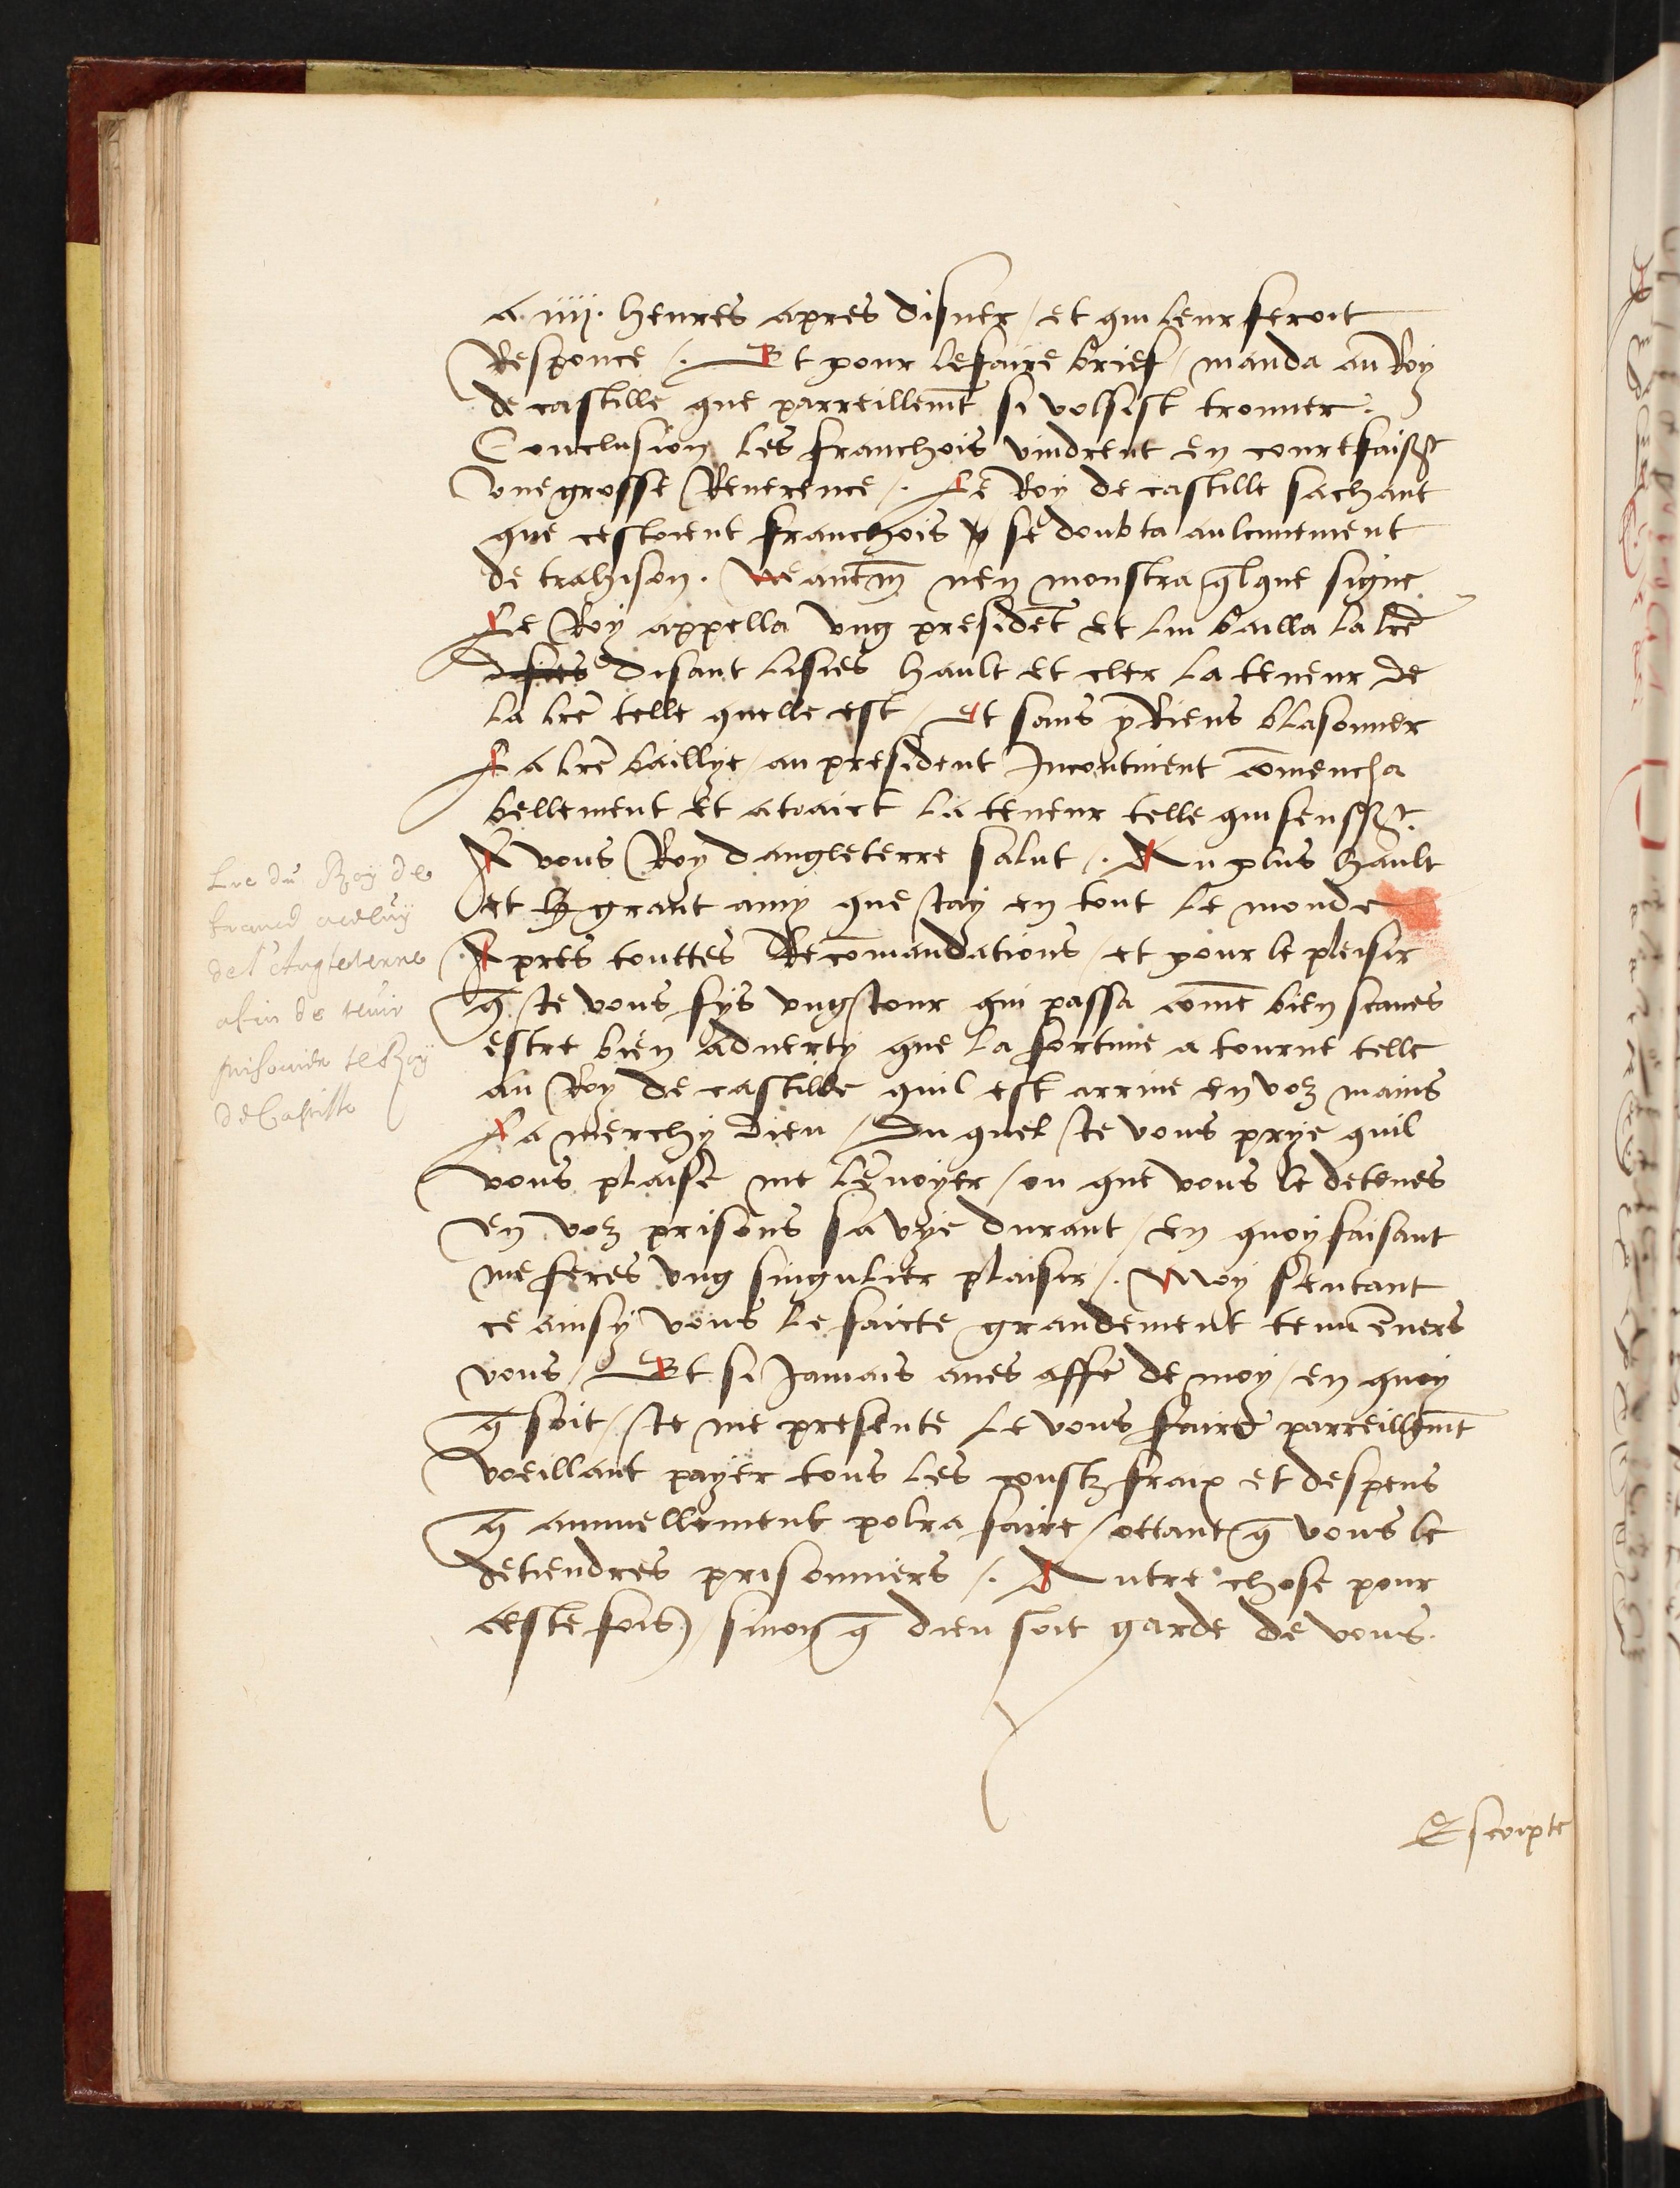 a. iiii. heures apres disner / et qui leur feroit
Responce /. Et pour le faire brief / manda au Roy
de castille que parreillemēt si volsist trouuer.
Conclusion les franchois vindrent en court faisāt
vne grosse Reuerence /. Le Roy de castille sachant
que cestoient franchois se doubta aulcunement
de trahison. Neantm̄ nen monstra q̄lque signe.
Le Roy appella vng presidēt et luy bailla la lr̄e
disant lisies hault et cler la teneur de
la lr̄e telle quelle est / Et sans y Riens blasonner
La lr̄e baillye / au president Incontinent cōmencha
bellement et a traict la teneur telle qui sensuyt.
A vous Roy dangleterre salut /. Au plus hault
et grant amy que jay en tout le monde
Apres touttes Recōmandations / et pour le plesir
q̄ Je vous fys vng jour qui passa cōme bien scaues
estre bien aduerty que la fortune a tourne telle
au Roy de castille quil est arriue en voz mains
La merchy dieu / Du quel Je vous prye quil
vous plaise me lenuoyer / ou que vous le detenes
en voz prisons sa vye durant / en quoy faisant
me feres vng singulier plaisir /. Moy sentant
ce ainsy vous le faicte grandement tenu ēuers
vous / Et si Jamais aues affē de moy / en quoy
q̄ soit / Je me presente le vous faire parreillemēt
voeillant payer tous les coustz fraix et despens
q̄ annuellement polra faire / ottant q̄ vous le
detiendres prisonniers /. Autre chose pour
ceste fois / sinon q̄ dieu soit garde de vous.
Escripte
Lre du Roy de
france a celuy
de l'Angleterre
afin de tenir
prisonier le Roy
de Castille